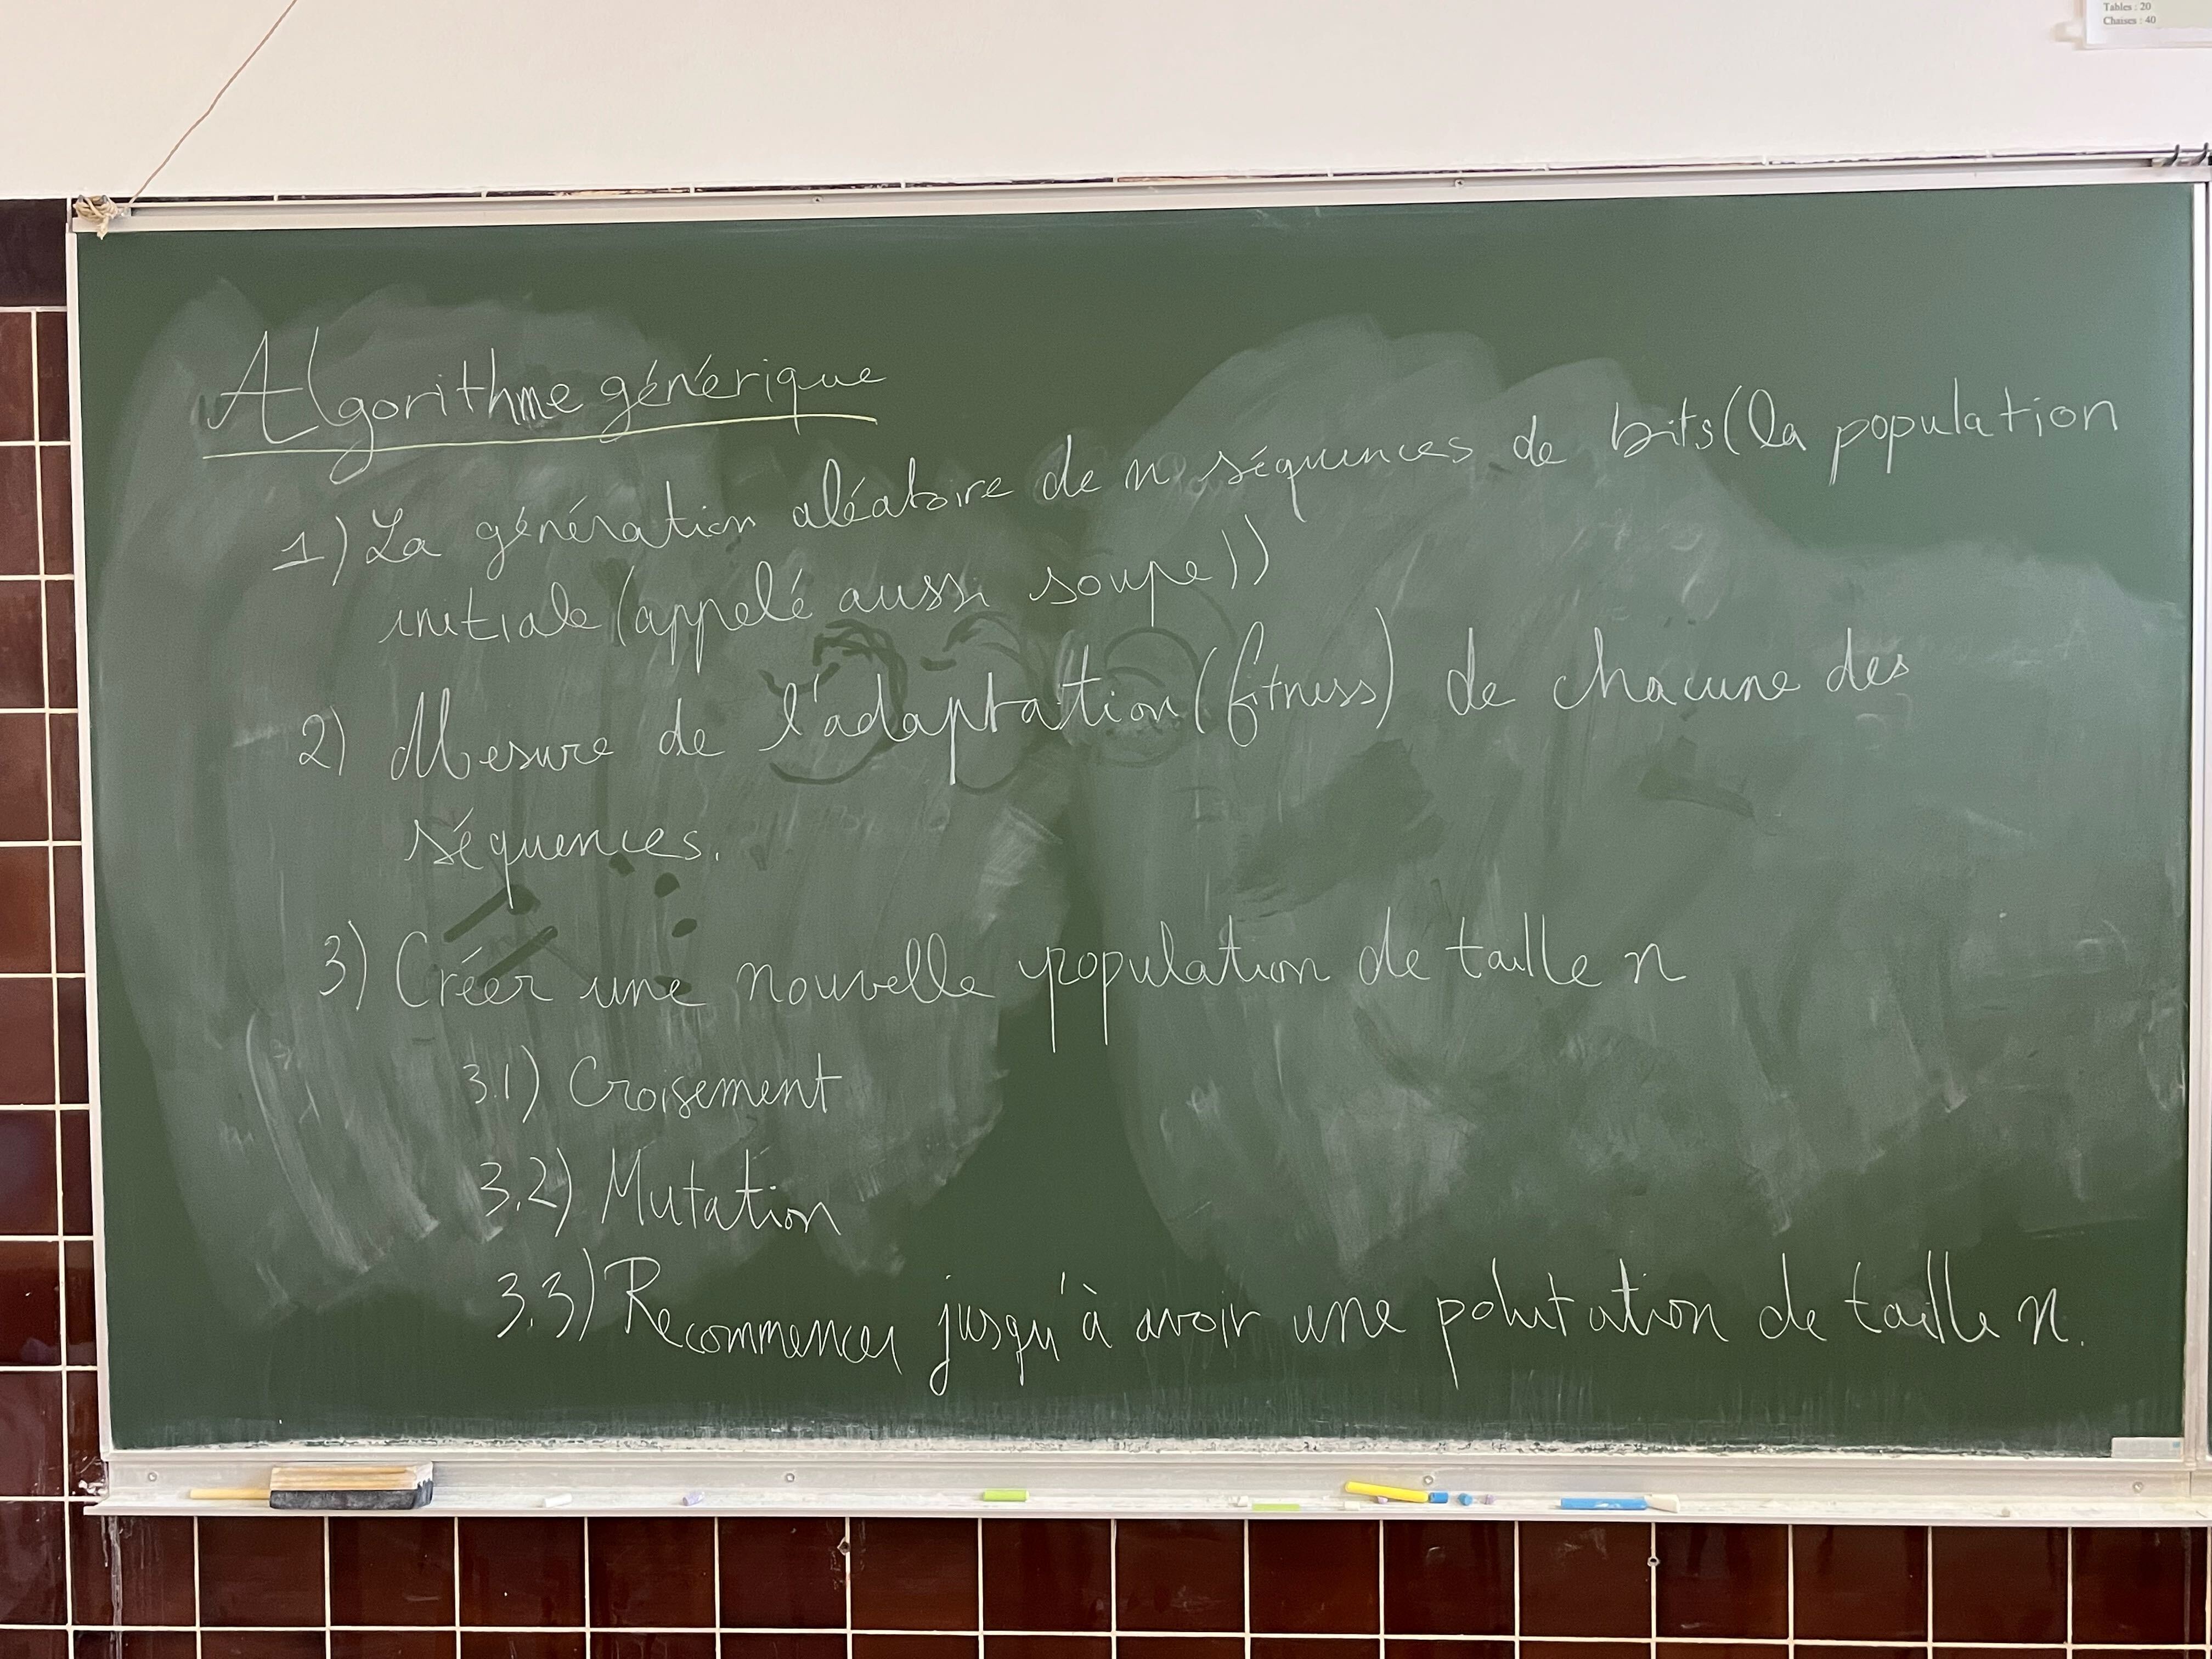 Tables : 20
Chaises : 40
Algorithme générique
1) La génération aléatoire de n séquences de bits (la population
initiale (appelé aussi soupe))
2) Mesure de l'adaptation (fitness) de chacune des
séquences.
3) Créer une nouvelle population de taille n
3.1) Croisement
3.2) Mutation
3.3) Recommencer jusqu'à avoir une polutation de taille n.